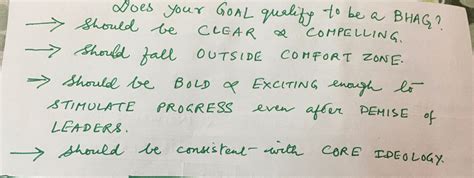 Does your GOAL qualify to be a BHAG?
→ Should be CLEAR & COMPELLING.
→ Should fall OUTSIDE COMFORT ZONE.
→ Should be BOLD & EXCITING enough to
STIMULATE PROGRESS even after DEMISE of
LEADERS.
→ Should be consistent with CORE IDEOLOGY.